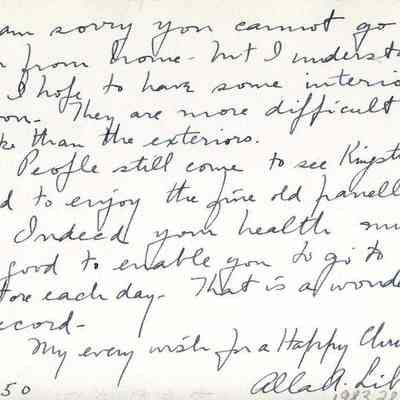 am sorry you cannot go
from home - but I understa
I hope to have some interio
oon. They are more difficult
ke than the exteriors.
People still come to see Kingst
d to enjoy the fine old panell
Indeed your health mu
good to enable you to go to
tore each day. That is a wonde
ecord.
My every wish for a Happy Chri
50
1983.28